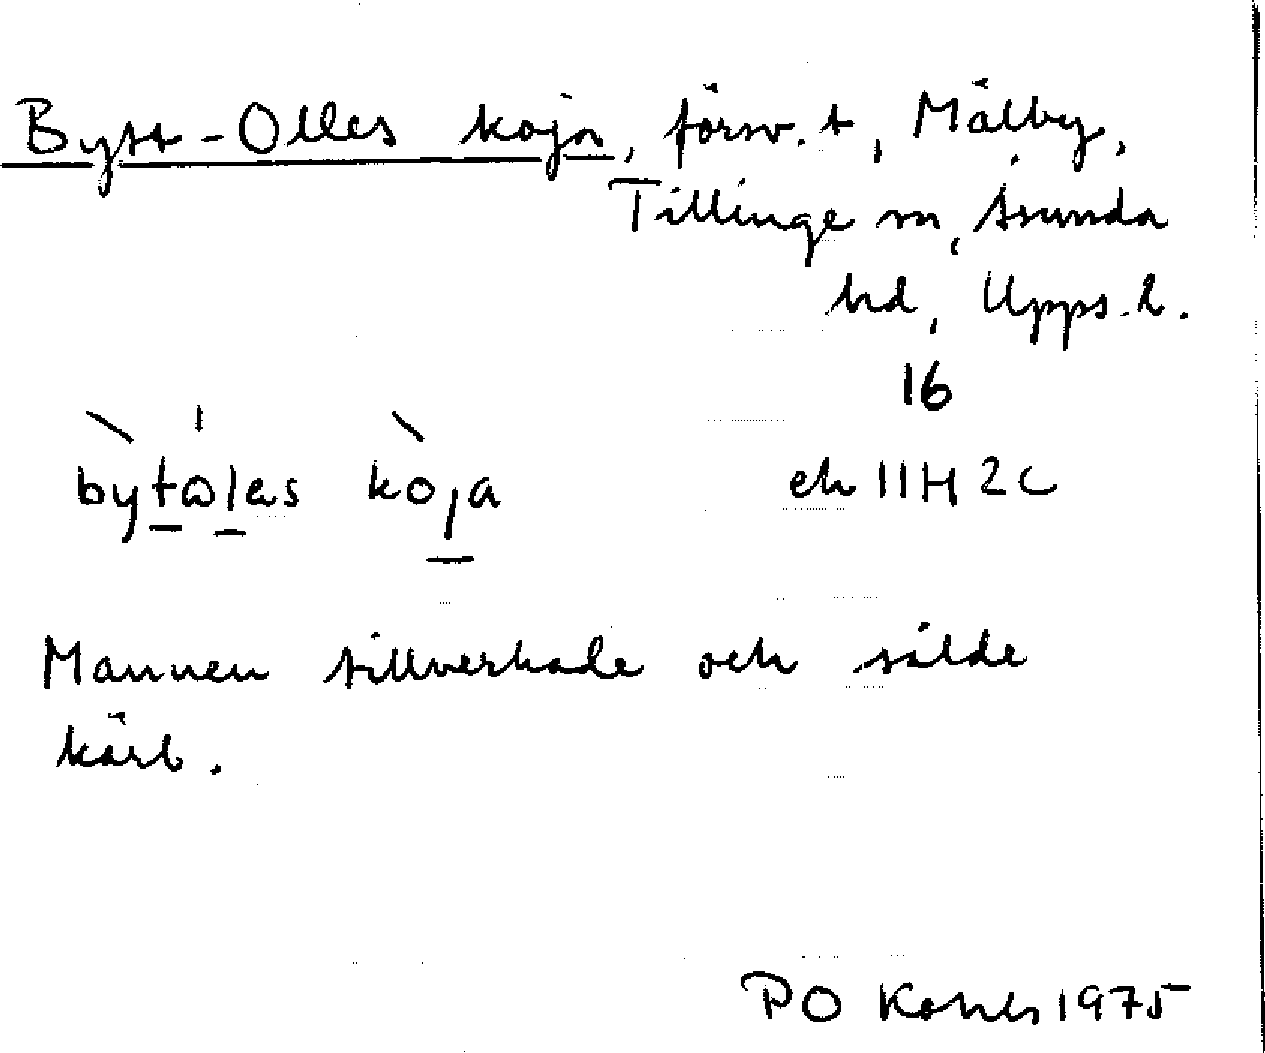 Bytt-Olles koja, försv. t, Mälby,
Tillinge sn, Åsunda
hd, Upps. l.
16
bytωles koja
ek 11H 2c
Mannen tillverkade och sålde
kärl.
PO 1975